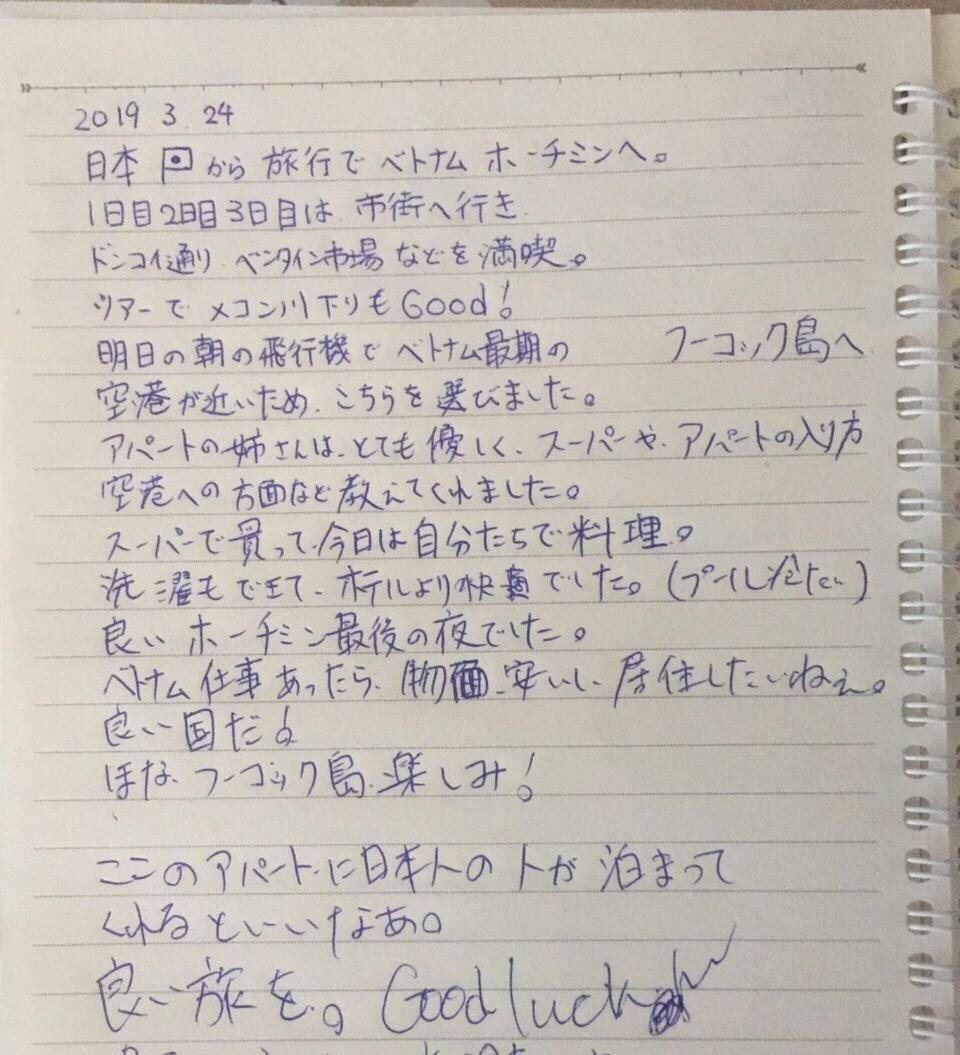 2019 3. 24
日本 から 旅行で ベトナム ホーチミンへ。
1日目2日目3日目は 市街へ行き
ドンコイ通り ベンタイン市場 などを満喫。
ツアーで メコン川下りも Good!
明日の朝の飛行機で ベトナム最期の フーコック島へ
空港が近いため、こちらを選びました。
アパートの姉さんは、とても優しく、スーパーや、アパートの入り方
空港への方面など教えてくれました。
スーパーで買って、今日は自分たちで料理。
洗濯もできて、ホテルより快適でした。(プール冷たい)
良い ホーチミン最後の夜でした。
ベトナム仕事あったら、物価 安いし、居住したいねぇ。
良い国だ!
ほな、フーコック島、楽しみ!
ここのアパートに日本人の人が泊まって
くれるといいなあ。
良い旅を。Good luck